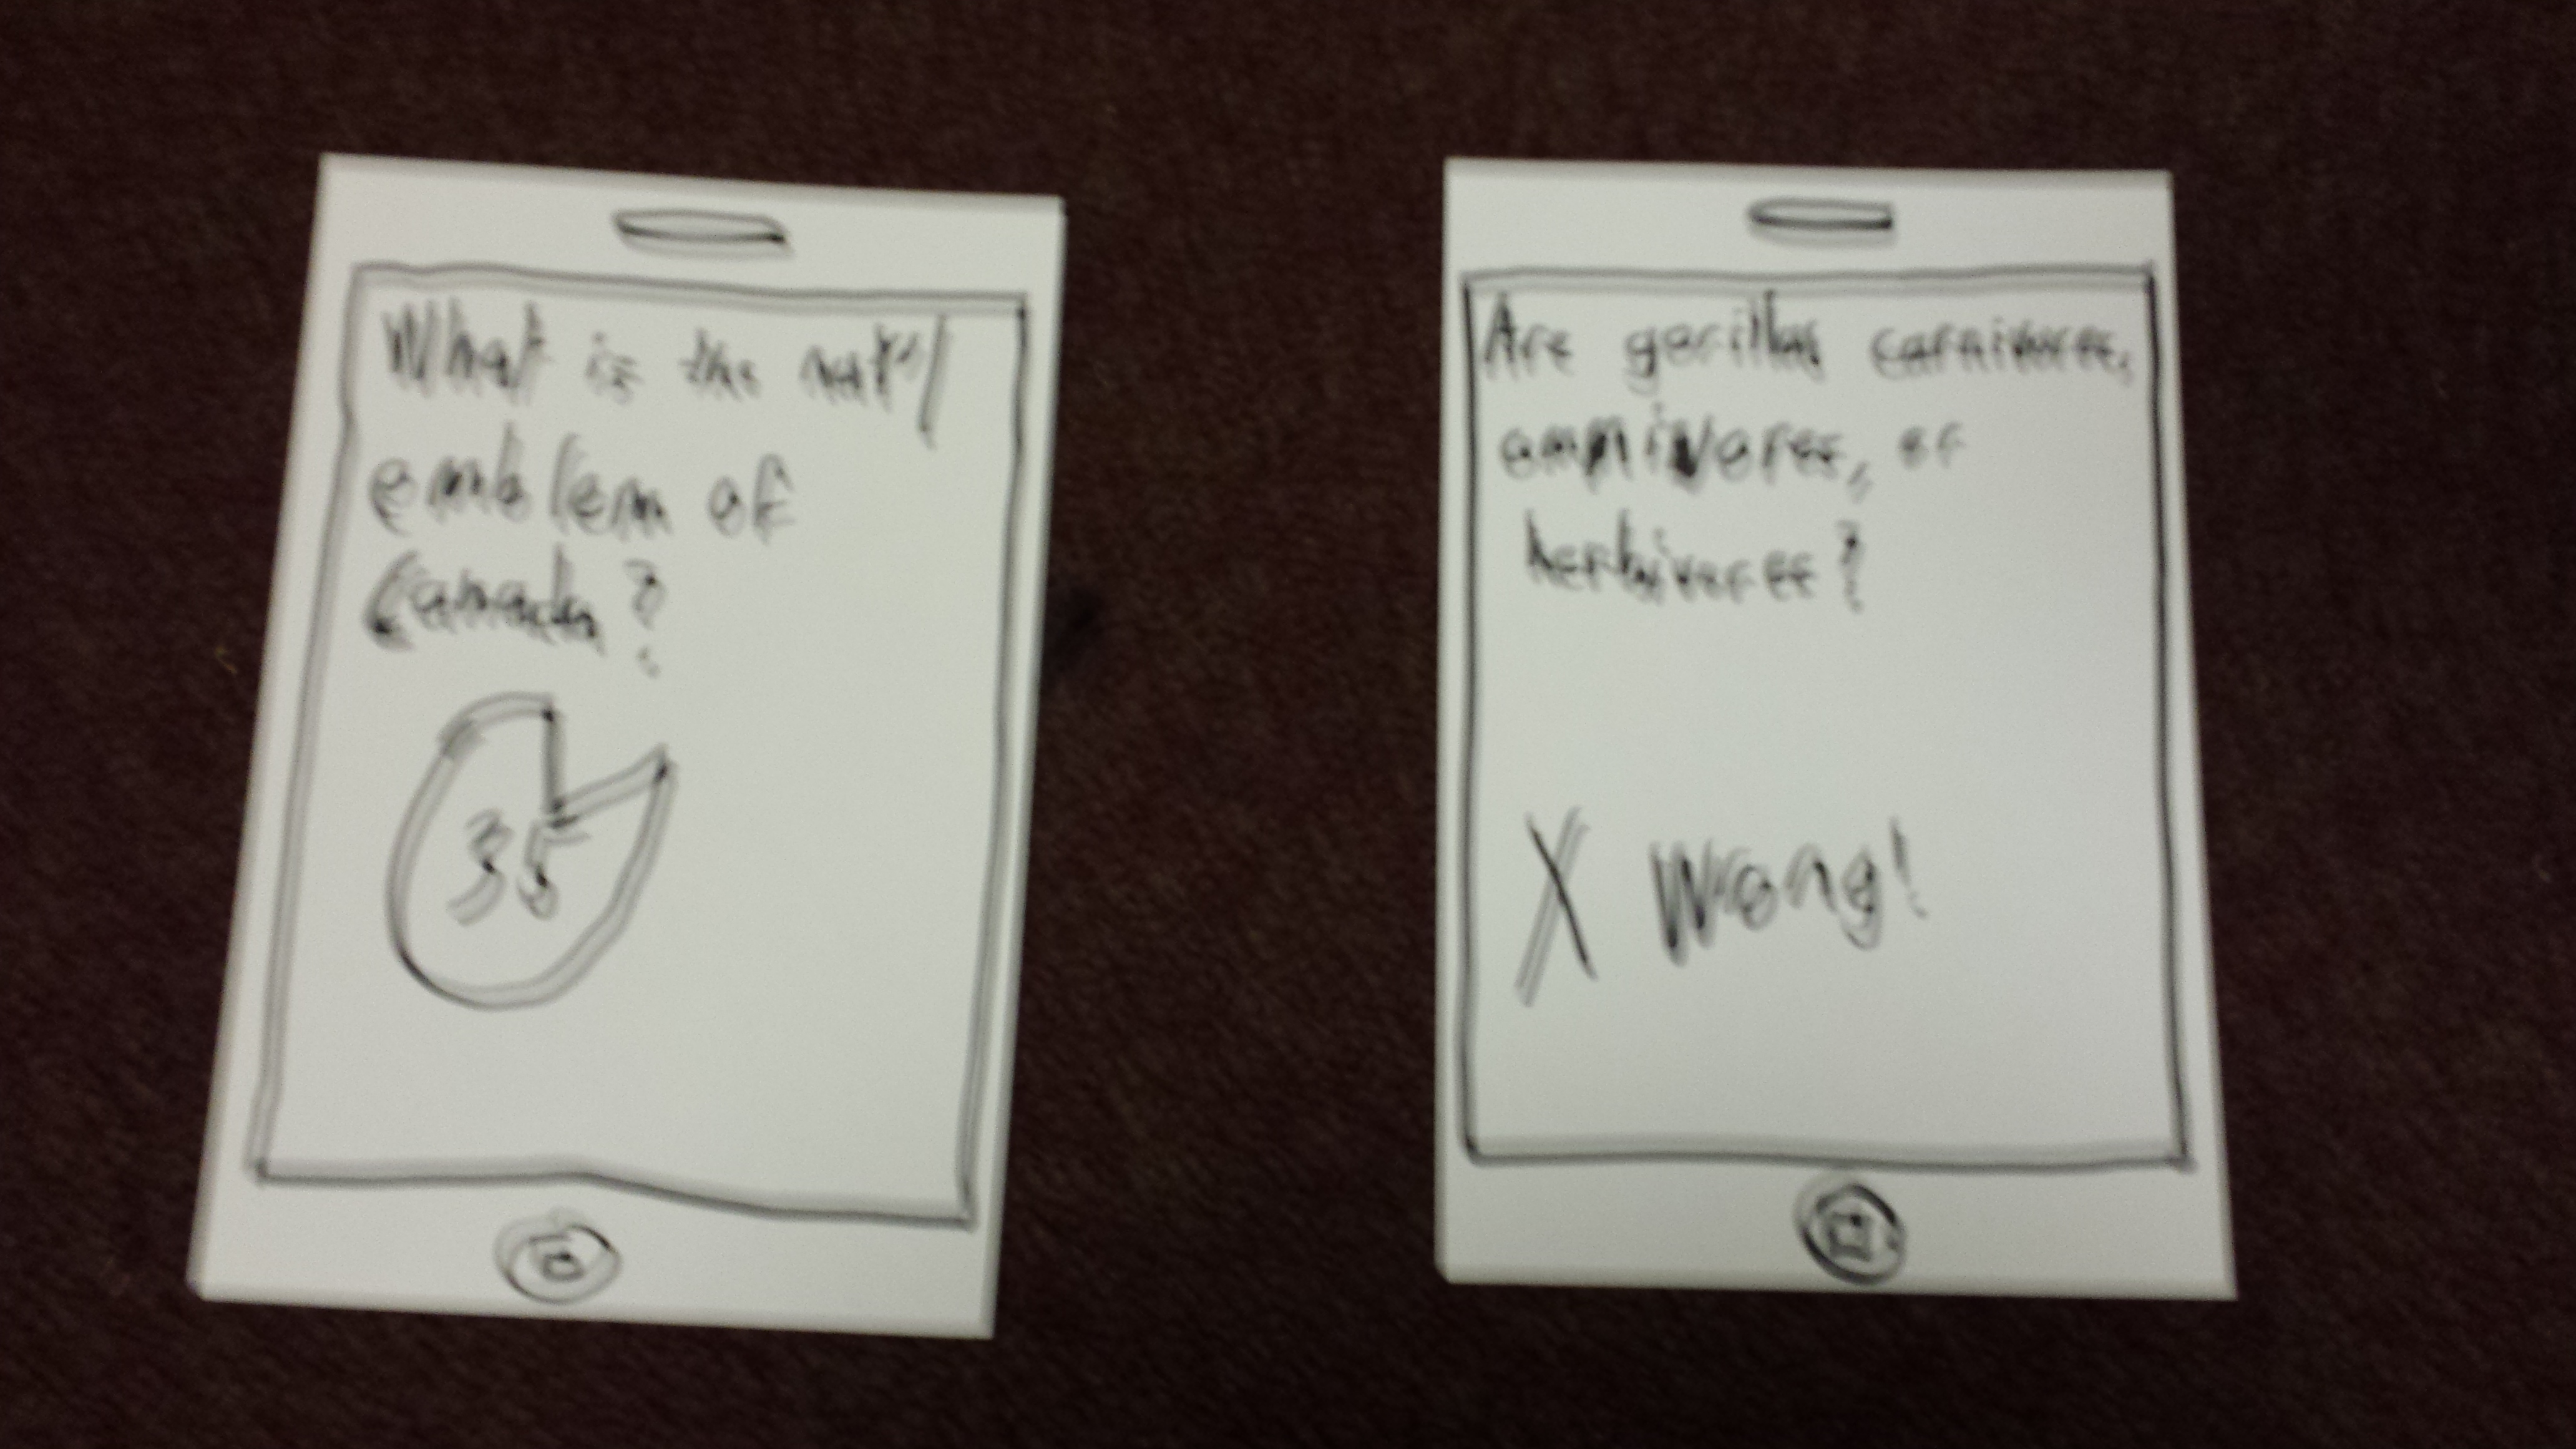 What is the nat'l
emblem of
Canada?
Are gorillas carnivores,
omnivores, or
herbivores?
X Wrong!